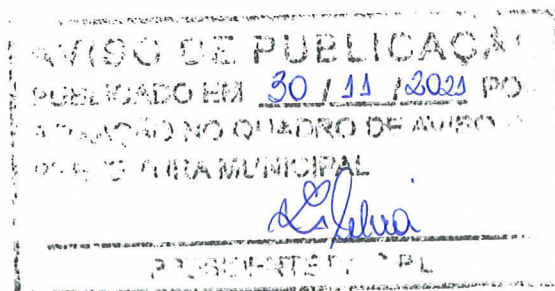 AVISO DE PUBLICAÇÃO
PUBLICADO EM 30 / 11 / 2021 PO
NO QUADRO DE AVISO
MUNICIPAL
PRESIDENTE CPL